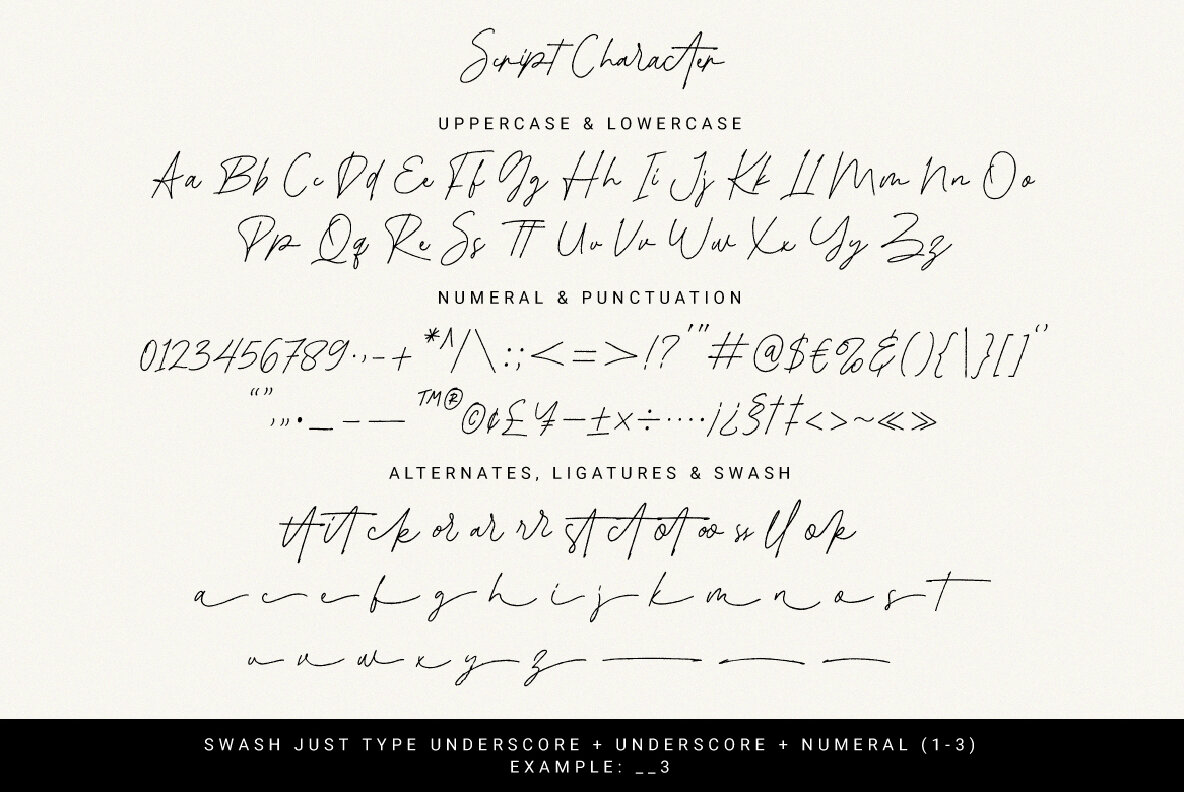 Script Character
UPPERCASE & LOWERCASE
Aa Bb Cc Dd Ee Ff Gg Hh Ii Jj Kk Ll Mm Nn Oo
Pp Qq Rr Ss Tt Uu Vv Ww Xx Yy Zz
NUMERAL & PUNCTUATION
0123456789.,-+*^/\:;<=>!?'"#@$€%&(){|}[]‘’
“”‚„•_–—™®©¢£¥−±×÷····¡¿§†‡‹›~«»
ALTERNATES, LIGATURES & SWASH
tt it ck or ar rr st ct ot oo ss ll ok
a c e f g h i j k m n o s t
u v w x y z
SWASH JUST TYPE UNDERSCORE + UNDERSCORE + NUMERAL (1-3)
EXAMPLE: __3